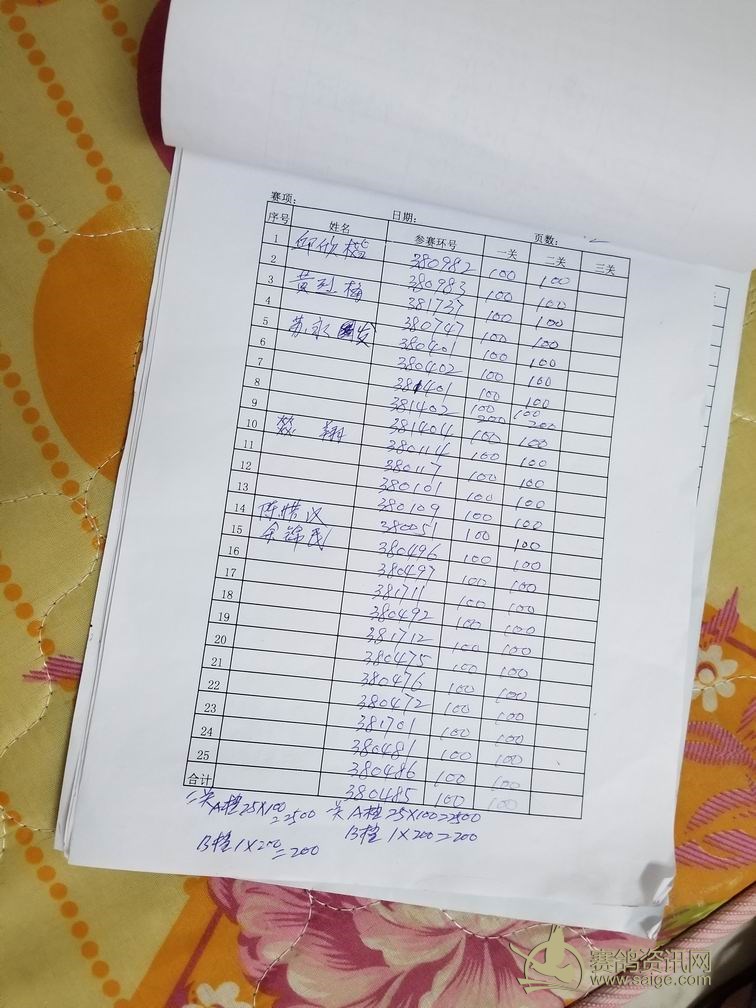 赛项: 日期: 页数: 2
序号 姓名 参赛环号 一关 二关 三关
1 380982 100 100
2 380983 100 100
3 381737 100 100
4 380747 100 100
5 苏永 380401 100 100
6 380402 100 100
7 381401 100 100
8 381402 100 100 200 200
9 381404 100 100
10 翔 380114 100 100
11 380117 100 100
12 380101 100 100
13 380109 100 100
14 陈惜汉 380051 100 100
15 余锦民 380496 100 100
16 380497 100 100
17 381711 100 100
18 380492 100 100
19 381712 100 100
20 380475 100 100
21 380476 100 100
22 380472 100 100
23 381701 100 100
24 380481 100 100
25 380486 100 100
合计 380485 100 100
二关A档 25×100=2500 一关 A档 25×100=2500
B档 1×200=200 B档 1×200=200
赛鸽资讯网
www.saige.com